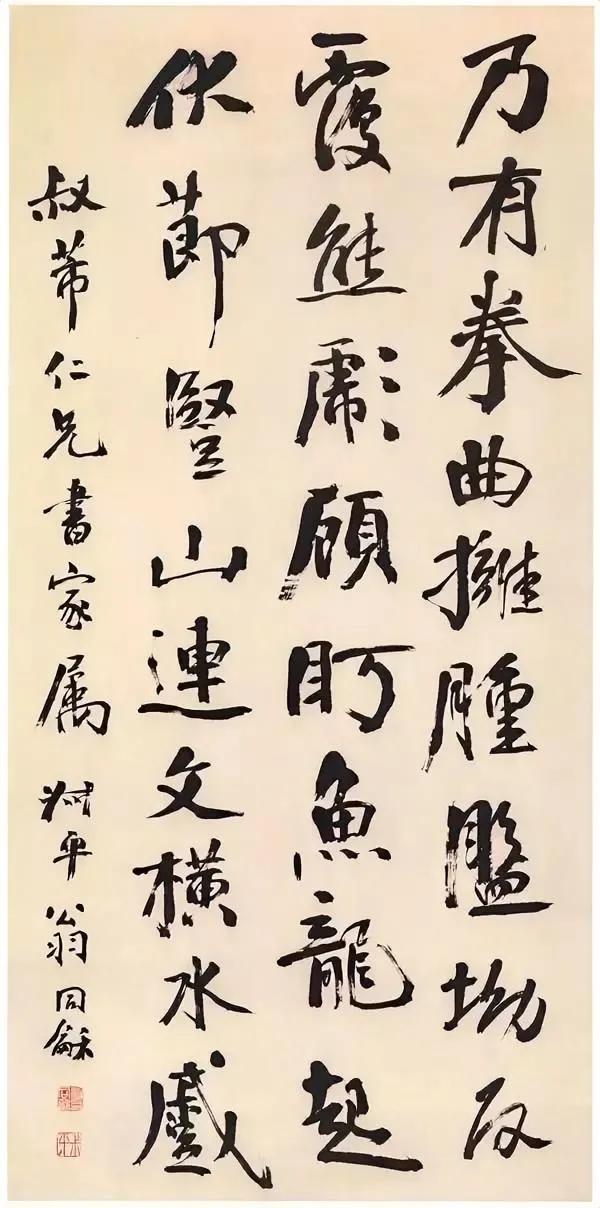 乃有拳曲擁腫盤坳反
覆熊彪顧眄魚龍起
伏節豎山連文横水蹙
叔芾仁兄書家属 叔平翁同龢